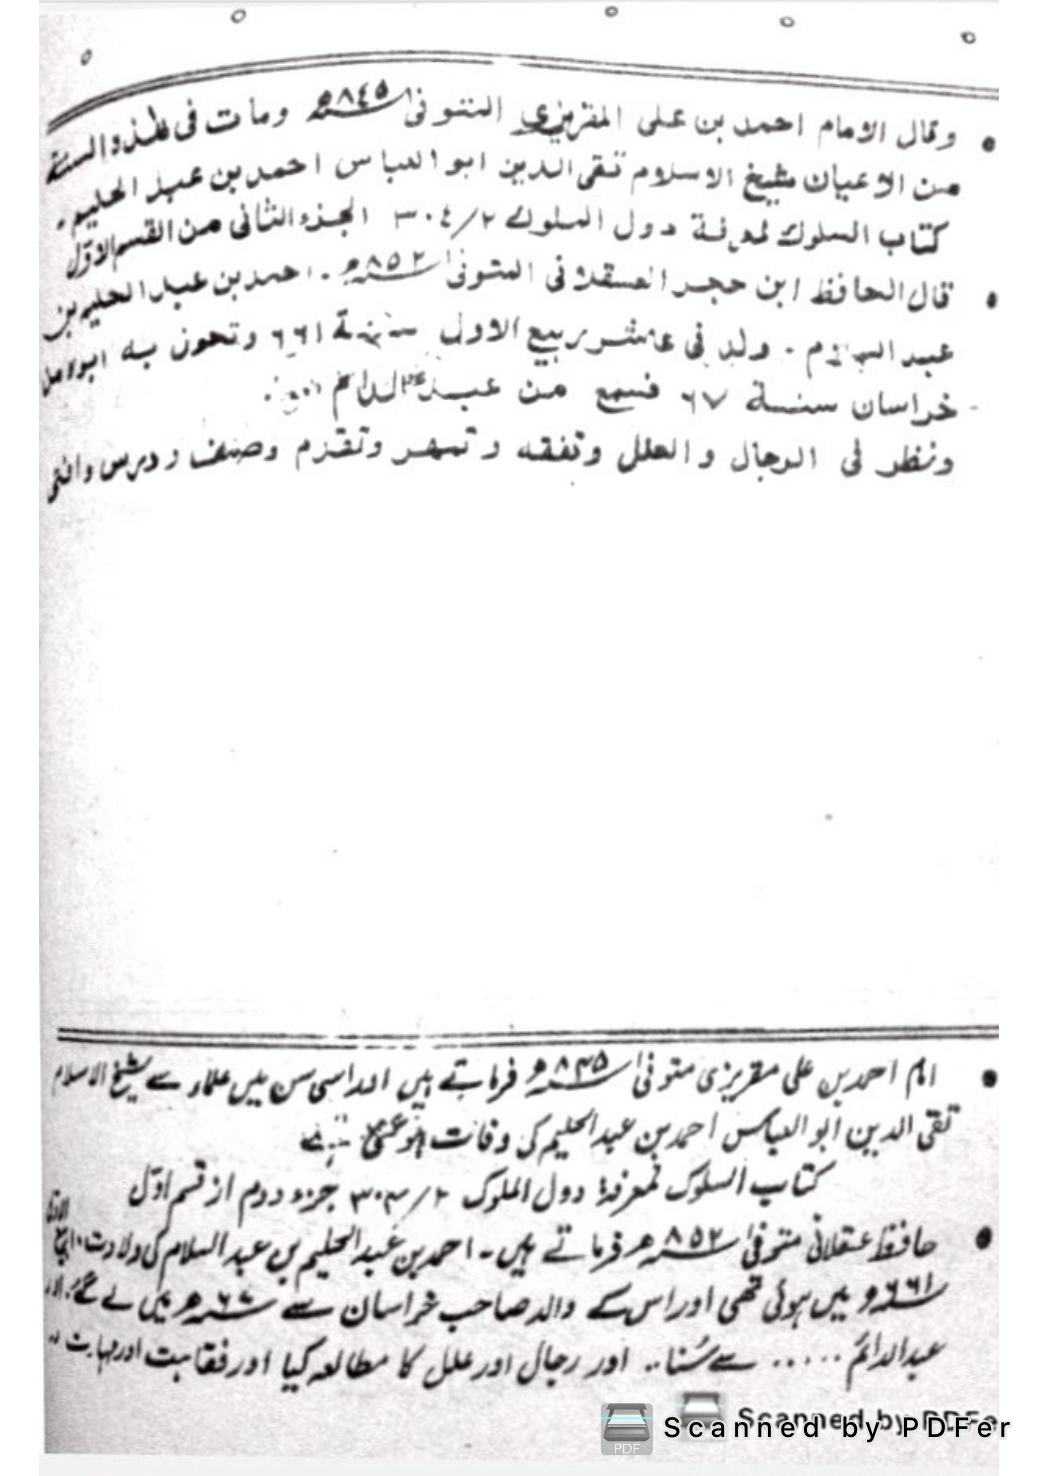 • وقال الامام احمد بن علی المقریزی المتوفیٰ ۸٤۵ھ ومات فی هٰذه السنة
من الاعیان شیخ الاسلام تقی الدین ابو العباس احمد بن عبد الحلیم۔
کتاب السلوک لمعرفة دول الملوک ۲/۳۰٤ الجزء الثانی من القسم الاوّل
• قال الحافظ ابن حجر العسقلانی المتوفیٰ ۸۵۲ھ۔ احمد بن عبد الحلیم بن
عبد السلام۔ ولد فی عاشر ربیع الاول سنة ٦٦۱ وتحون به ابوه من
خراسان سنة ٦۷ فسمع من عبد الدائم
ونظر فی الرجال والعلل وتفقه وتمهر وتقدم وصنف ودرس وافتی
• امام احمد بن علی مقریزی متوفیٰ ۸۴۵ھ فرماتے ہیں اور اسی سن میں علماء سے شیخ الاسلام
تقی الدین ابو العباس احمد بن عبد الحلیم کی وفات ہو گئی ہے
کتاب السلوک لمعرفۃ دول الملوک ۲/۳۰۴ جزء دوم از قسم اوّل
• حافظ عسقلانی متوفیٰ ۸۵۲ھ فرماتے ہیں۔ احمد بن عبد الحلیم بن عبد السلام کی ولادت ۱۰ ربیع الاوّل
٦٦۱ھ میں ہوئی تھی اور اس کے والد صاحب خراسان سے ٦۷ھ میں لے گئے۔
عبد الدائم ..... سے سُنا.. اور رجال اور علل کا مطالعہ کیا اور فقاہت اور مہارت
Scanned by PDFer
Scanned by PDFer